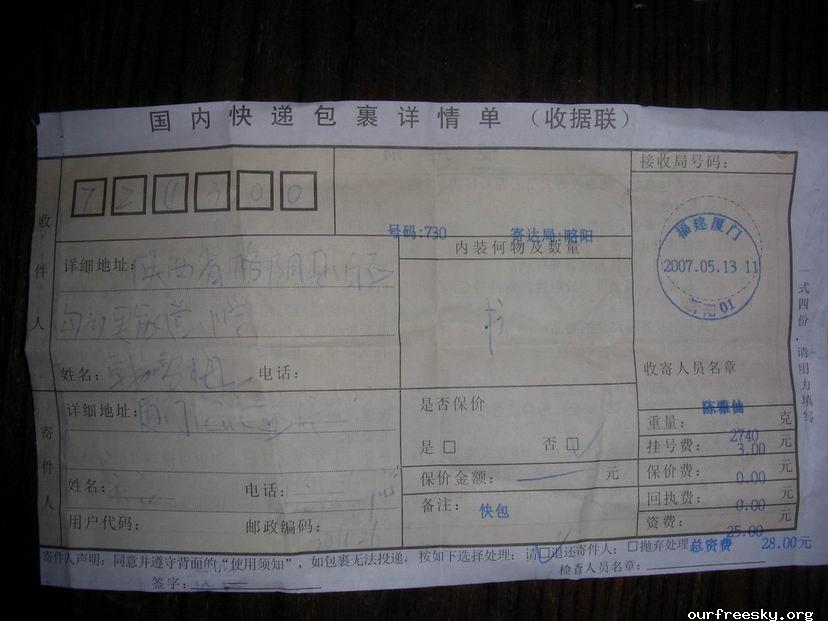 国内快递包裹详情单（收据联）
接收局号码：
724300
号码:730 寄达局:略阳
收件人
详细地址：陕西省略阳县
内装何物及数量
书
福建厦门
2007.05.13 11
01
一式四份，请用力填写
姓名： 电话：
收寄人员名章
陈雅仙
寄件人
详细地址：厦门
是否保价
是□ 否□
重量： 2740 克
挂号费： 3.00 元
保价金额： 元
保价费： 0.00 元
姓名： 电话：
备注： 快包
回执费： 0.00 元
用户代码： 邮政编码：
资费： 25.00 元
寄件人声明：同意并遵守背面的“使用须知”，如包裹无法投递，按如下选择处理：请□退还寄件人；□抛弃处理 总资费 28.00元
签字：
检查人员名章：
ourfreesky.org